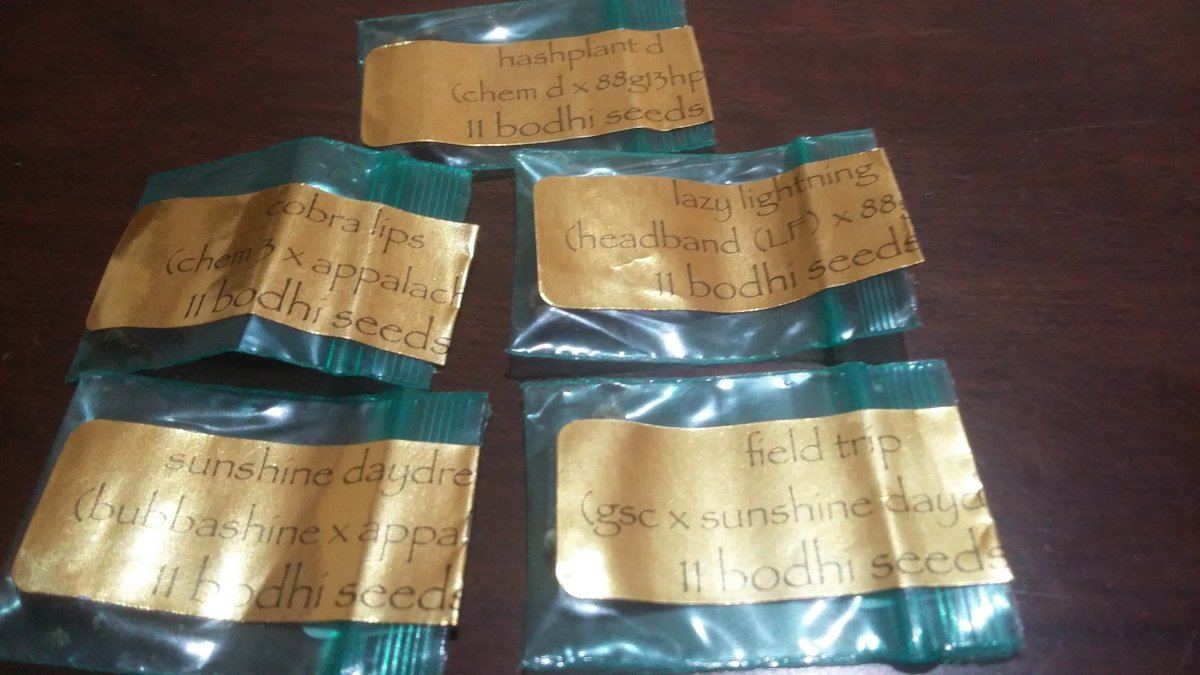 hashplant d
(chem d x 88g13hp
11 bodhi seeds
cobra lips
(chem 3 x appalach
11 bodhi seeds
lazy lightning
(headband (LF) x 88g
11 bodhi seeds
sunshine daydre
(bubbashine x appal
11 bodhi seeds
field trip
(gsc x sunshine dayd
11 bodhi seeds